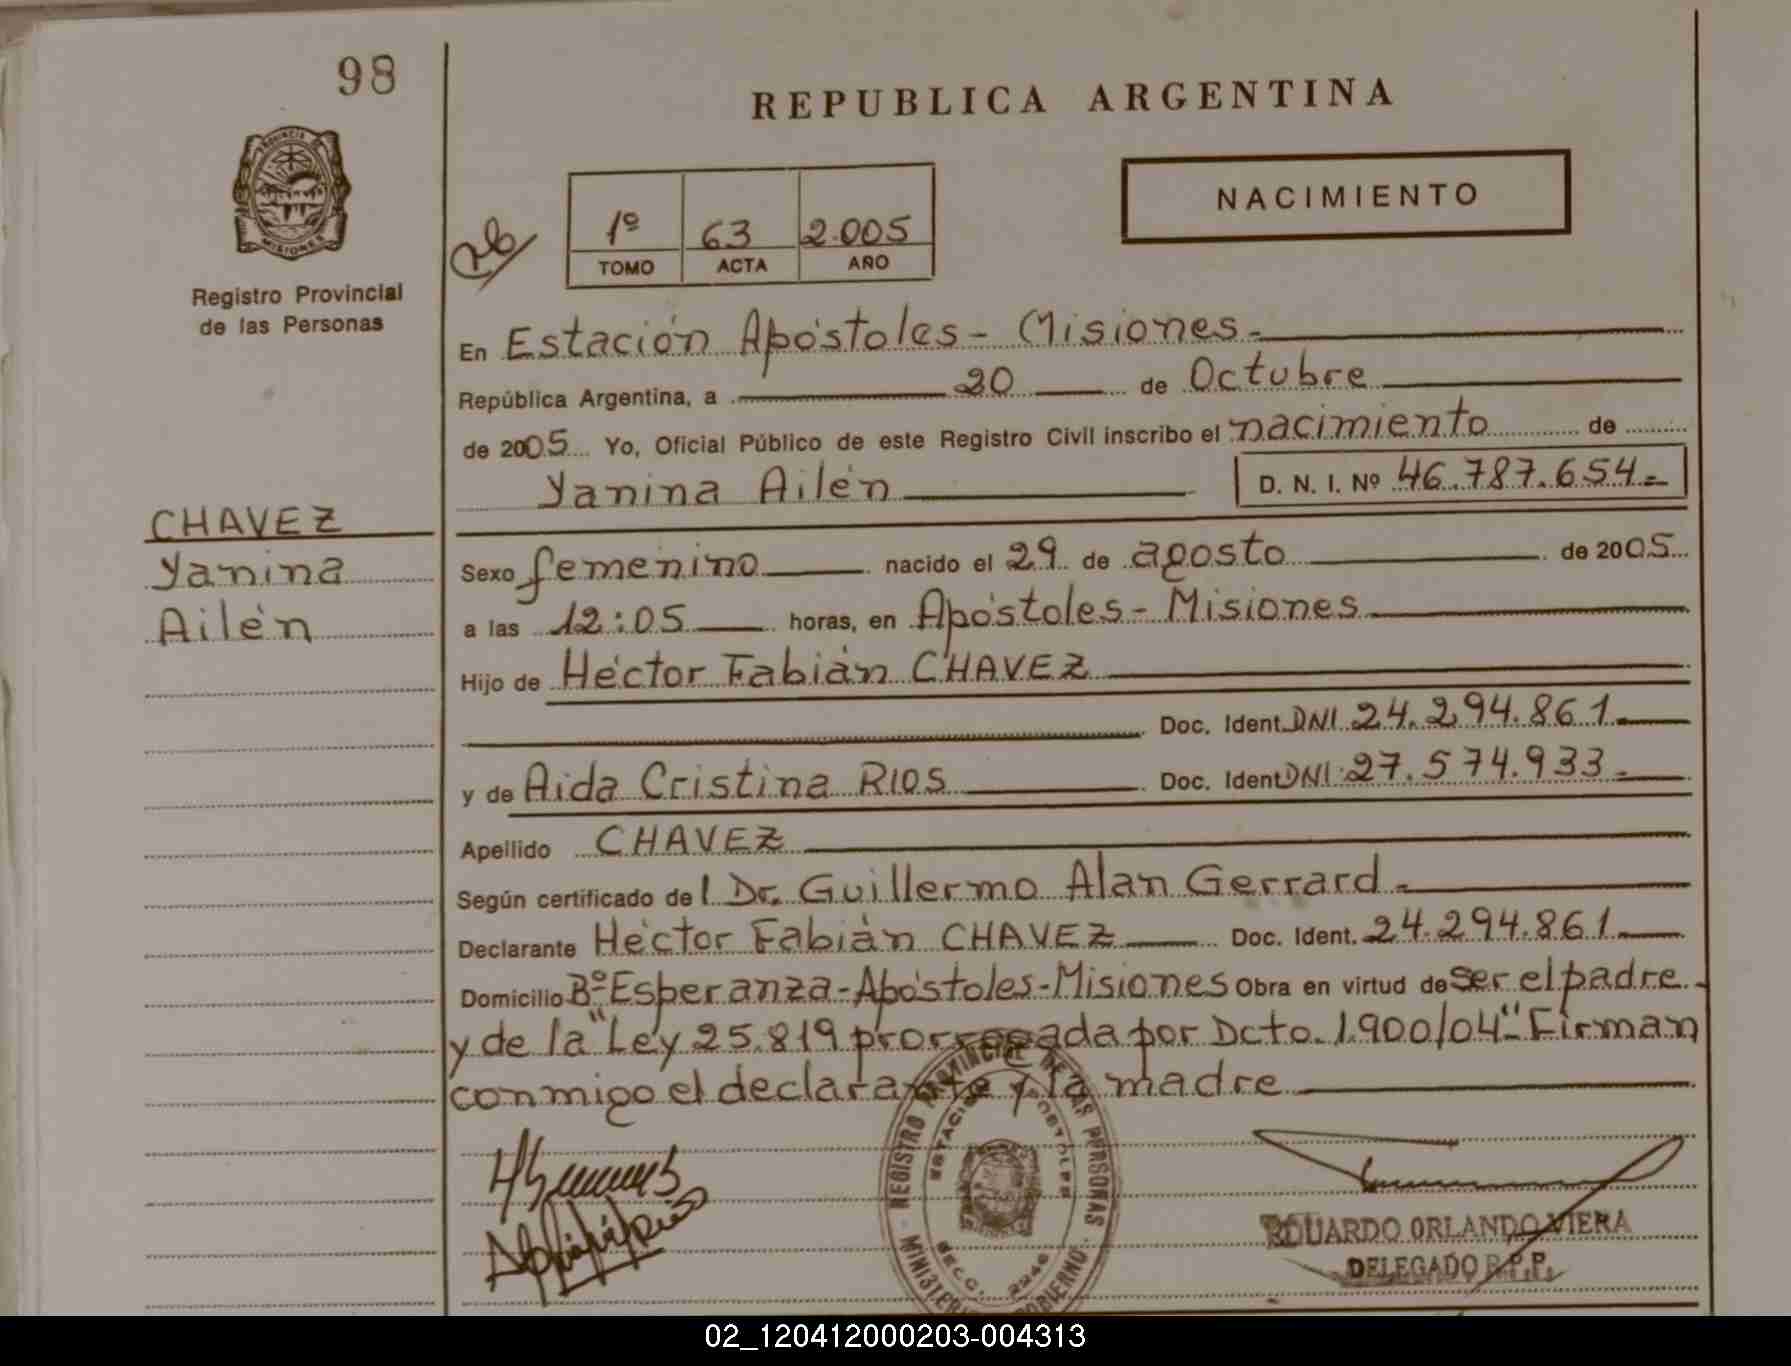 98
REPUBLICA ARGENTINA
PROVINCIA DE
MISIONES
Registro Provincial
de las Personas
26
1º 63 2.005
TOMO ACTA AÑO
NACIMIENTO
En Estación Apóstoles - Misiones.-
República Argentina, a 20 de Octubre
de 2005 Yo, Oficial Público de este Registro Civil inscribo el nacimiento de
Yanina Ailén D. N. I. Nº 46.787.654.-
CHAVEZ
Yanina
Ailén
Sexo femenino nacido el 29 de agosto de 2005
a las 12:05 horas, en Apóstoles - Misiones
Hijo de Héctor Fabián CHAVEZ
Doc. Ident. DNI 24.294.861.
y de Aida Cristina RIOS Doc. Ident DNI: 27.574.933.-
Apellido CHAVEZ
Según certificado del Dr. Guillermo Alan Gerrard.-
Declarante Héctor Fabián CHAVEZ Doc. Ident. 24.294.861.
Domicilio Bº Esperanza-Apóstoles-Misiones Obra en virtud de ser el padre.
y de la "Ley 25.819 prorrogada por Dcto. 1.900/04" Firman
conmigo el declarante y la madre
REGISTRO PROVINCIAL DE LAS PERSONAS
ESTACION APOSTOLES
SECC. 2246
MINISTERIO GOBIERNO
EDUARDO ORLANDO VIERA
DELEGADO R.P.P.
02_120412000203-004313